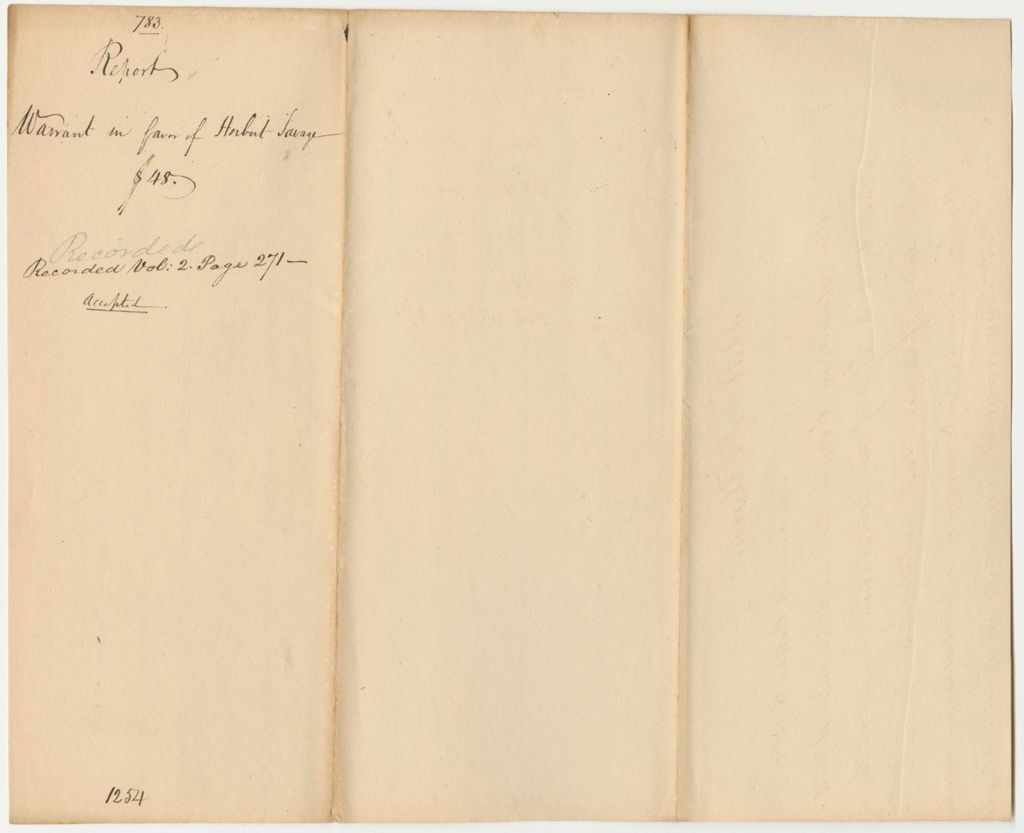 783.
Report
Warrant in favor of Herbert Savage
$48.
Recorded
Recorded Vol: 2. Page 271—
Accepted.
1254